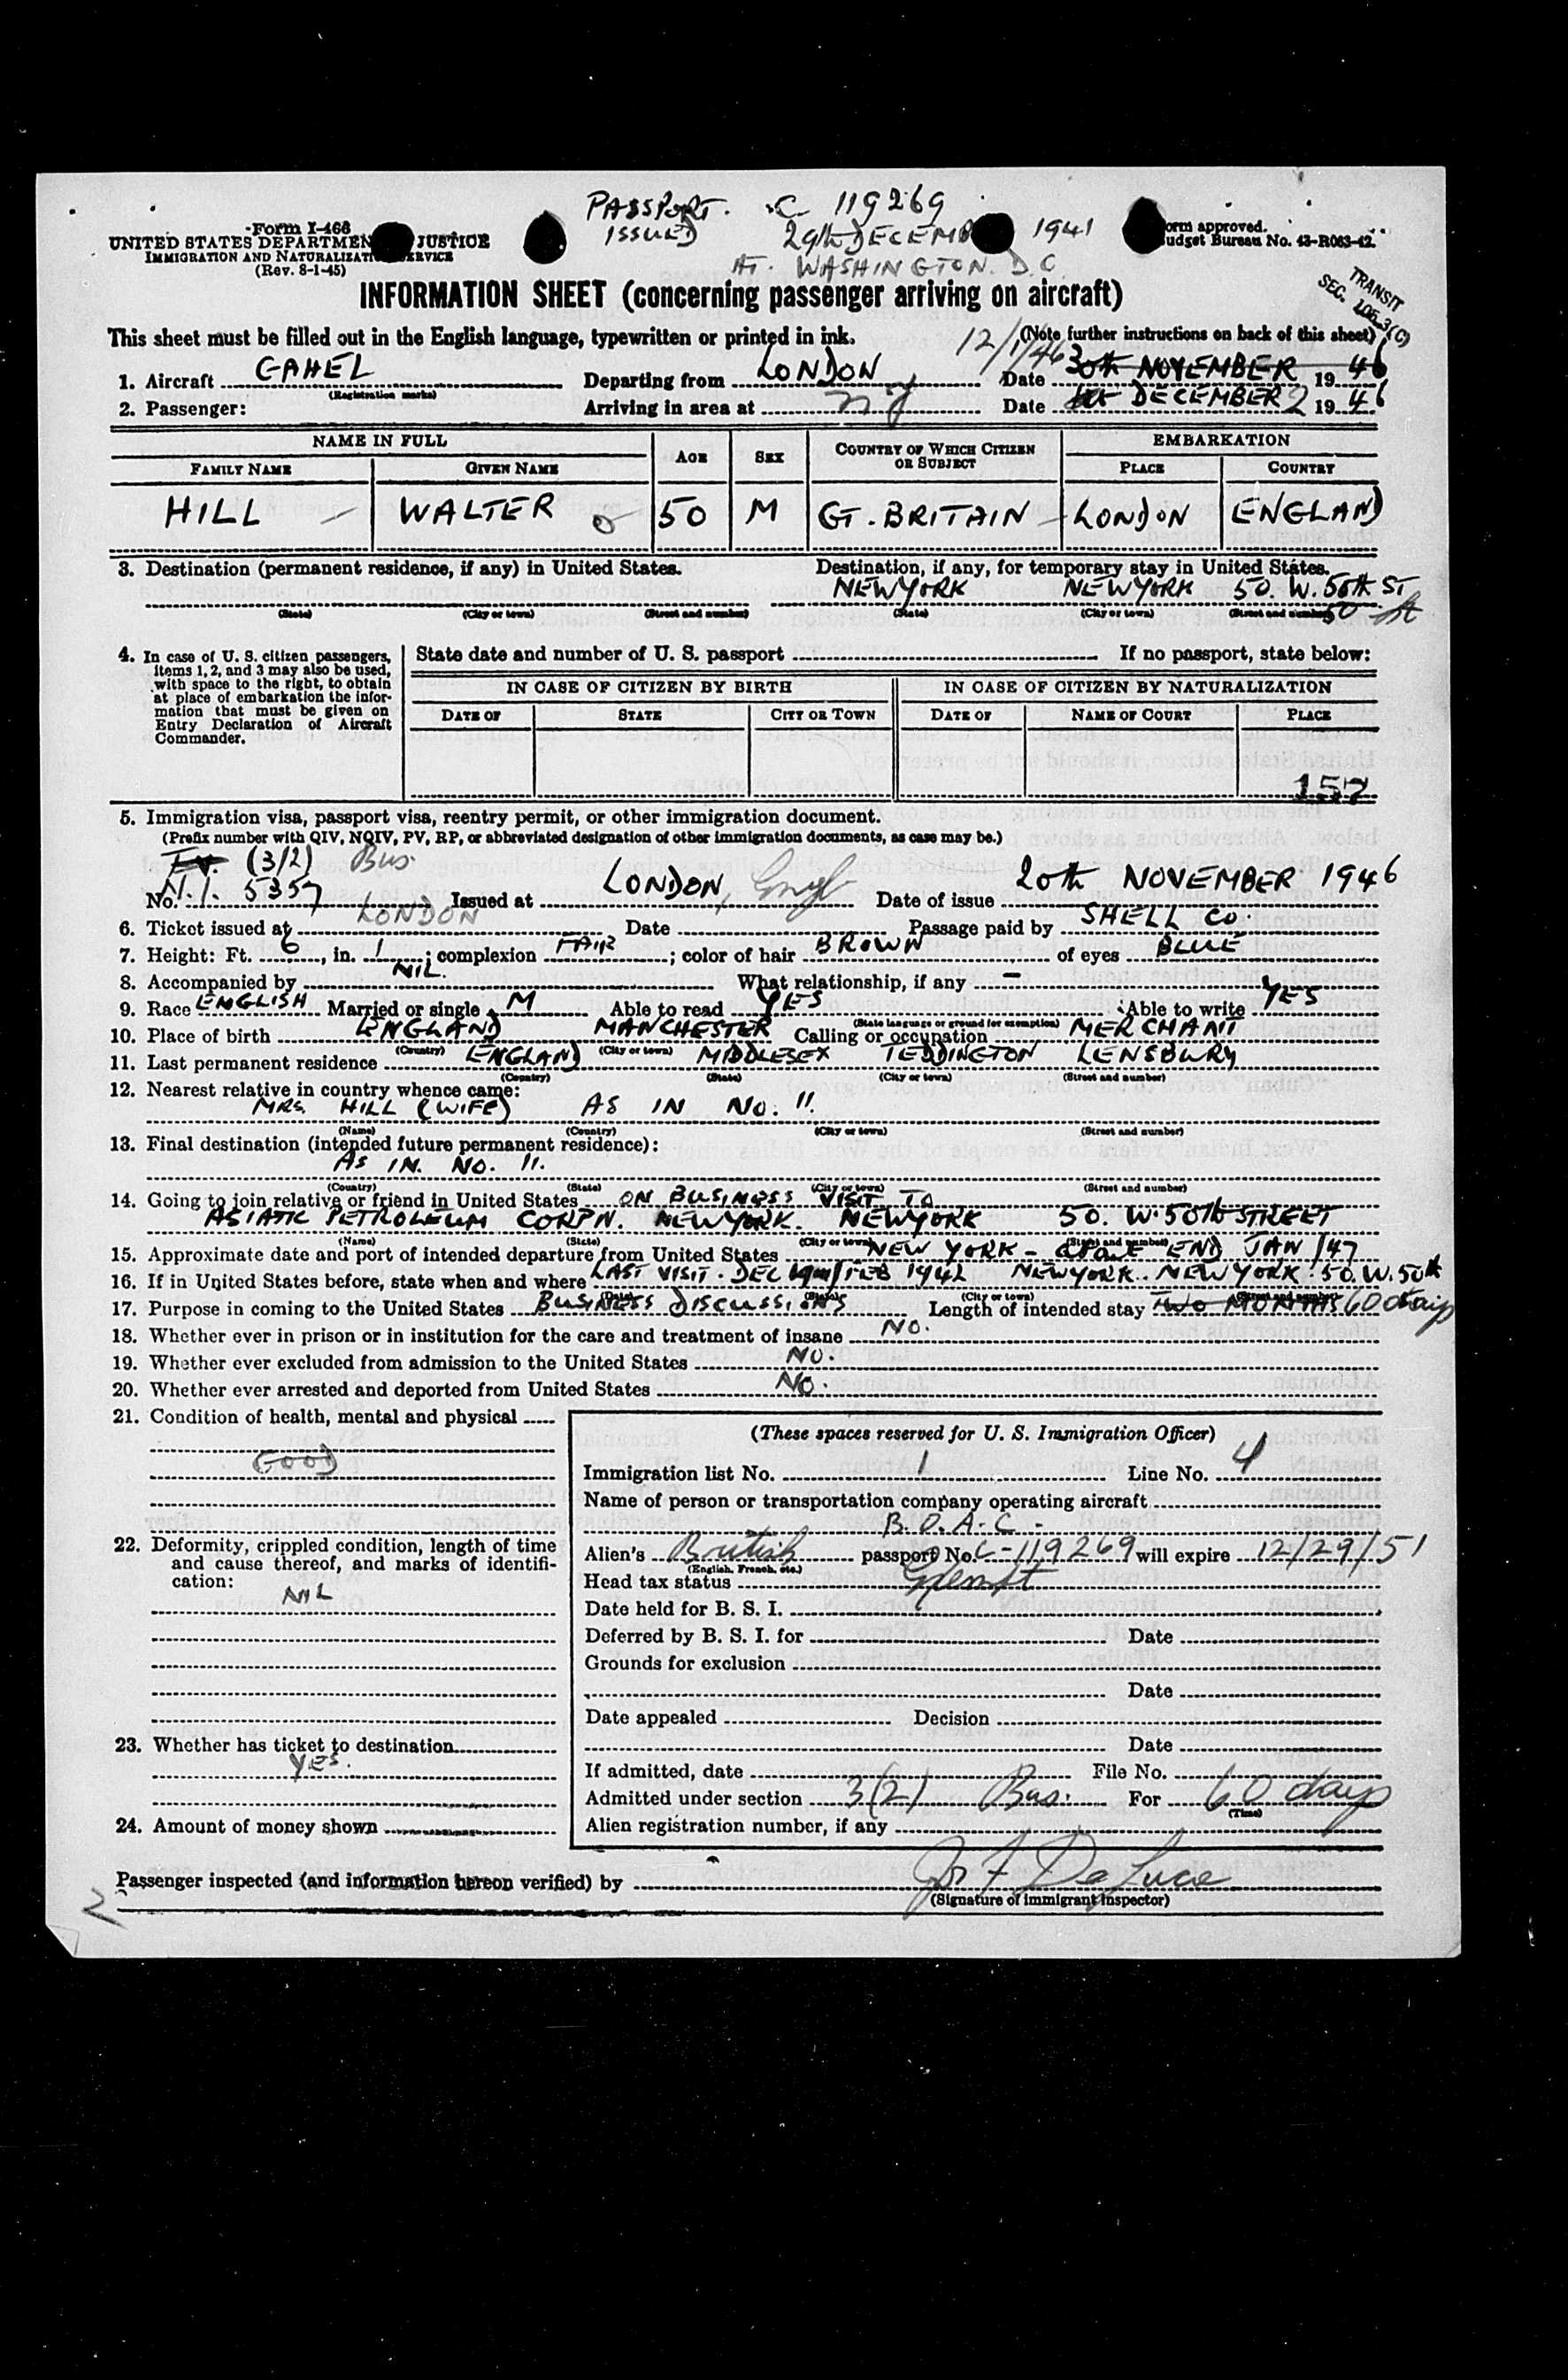 PASSPORT. C 119269
ISSUED 29th DECEMB 1941
AT. WASHINGTON. D.C.
Form I-466
UNITED STATES DEPARTMEN JUSTICE
IMMIGRATION AND NATURALIZATI ERVICE
(Rev. 8-1-45)
orm approved.
udget Bureau No. 43-R063-42.
INFORMATION SHEET (concerning passenger arriving on aircraft)
TRANSIT
SEC. 105.3(C)
This sheet must be filled out in the English language, typewritten or printed in ink. (Note further instructions on back of this sheet)
12/1/46
1. Aircraft GAHEL Departing from LONDON Date 30th NOVEMBER 19 46
(Registration marks)
2. Passenger: Arriving in area at NY Date 1st DECEMBER 2 19 46
NAME IN FULL AGE SEX COUNTRY OF WHICH CITIZEN OR SUBJECT EMBARKATION
FAMILY NAME GIVEN NAME PLACE COUNTRY
HILL WALTER 50 M GT. BRITAIN LONDON ENGLAND
3. Destination (permanent residence, if any) in United States. Destination, if any, for temporary stay in United States.
NEWYORK NEWYORK 50. W. 50th ST
(State) (City or town) (Street and number) (State) (City or town) (Street and number) 50 St
4. In case of U. S. citizen passengers, items 1, 2, and 3 may also be used, with space to the right, to obtain at place of embarkation the information that must be given on Entry Declaration of Aircraft Commander.
State date and number of U. S. passport If no passport, state below:
IN CASE OF CITIZEN BY BIRTH IN CASE OF CITIZEN BY NATURALIZATION
DATE OF STATE CITY OR TOWN DATE OF NAME OF COURT PLACE
157
5. Immigration visa, passport visa, reentry permit, or other immigration document.
(Prefix number with QIV, NQIV, PV, RP, or abbreviated designation of other immigration documents, as case may be.)
(3/2) Bus.
No. N.I. 5357 Issued at LONDON, Engl Date of issue 20th NOVEMBER 1946
6. Ticket issued at LONDON Date Passage paid by SHELL CO.
7. Height: Ft. 6, in. 1; complexion FAIR; color of hair BROWN of eyes BLUE
8. Accompanied by NIL. What relationship, if any —
9. Race ENGLISH Married or single M Able to read YES Able to write YES
(State language or ground for exemption)
10. Place of birth ENGLAND MANCHESTER Calling or occupation MERCHANT
(Country) (City or town)
11. Last permanent residence ENGLAND MIDDLESEX TEDDINGTON LENSBURY
(Country) (State) (City or town) (Street and number)
12. Nearest relative in country whence came:
MRS. HILL (WIFE) AS IN NO. 11.
(Name) (Country) (City or town) (Street and number)
13. Final destination (intended future permanent residence):
AS IN. NO. 11.
(Country) (State) (City or town) (Street and number)
14. Going to join relative or friend in United States ON BUSINESS VISIT TO
ASIATIC PETROLEUM CORPN. NEWYORK. NEWYORK 50. W. 50th STREET
(Name) (State) (City or town) (Street and number)
15. Approximate date and port of intended departure from United States NEW YORK - END JAN /47
16. If in United States before, state when and where LAST VISIT. DEC 1941/FEB 1942 NEWYORK. NEW YORK. 50. W. 50th
(Date) (State) (City or town) (Street and number)
17. Purpose in coming to the United States BUSINESS DISCUSSIONS Length of intended stay TWO MONTHS 60 days
18. Whether ever in prison or in institution for the care and treatment of insane NO.
19. Whether ever excluded from admission to the United States NO.
20. Whether ever arrested and deported from United States NO.
21. Condition of health, mental and physical
GOOD
22. Deformity, crippled condition, length of time and cause thereof, and marks of identification:
NIL
23. Whether has ticket to destination
YES.
24. Amount of money shown
(These spaces reserved for U. S. Immigration Officer)
Immigration list No. 1 Line No. 4
Name of person or transportation company operating aircraft
B.O.A.C -
Alien's British passport No. C-119269 will expire 12/29/51
(English, French, etc.)
Head tax status Exempt
Date held for B. S. I.
Deferred by B. S. I. for Date
Grounds for exclusion
Date
Date appealed Decision
Date
If admitted, date File No.
Admitted under section 3(2) Bus. For 60 days
(Time)
Alien registration number, if any
Passenger inspected (and information hereon verified) by Jos F DeLuca
(Signature of immigrant inspector)
2